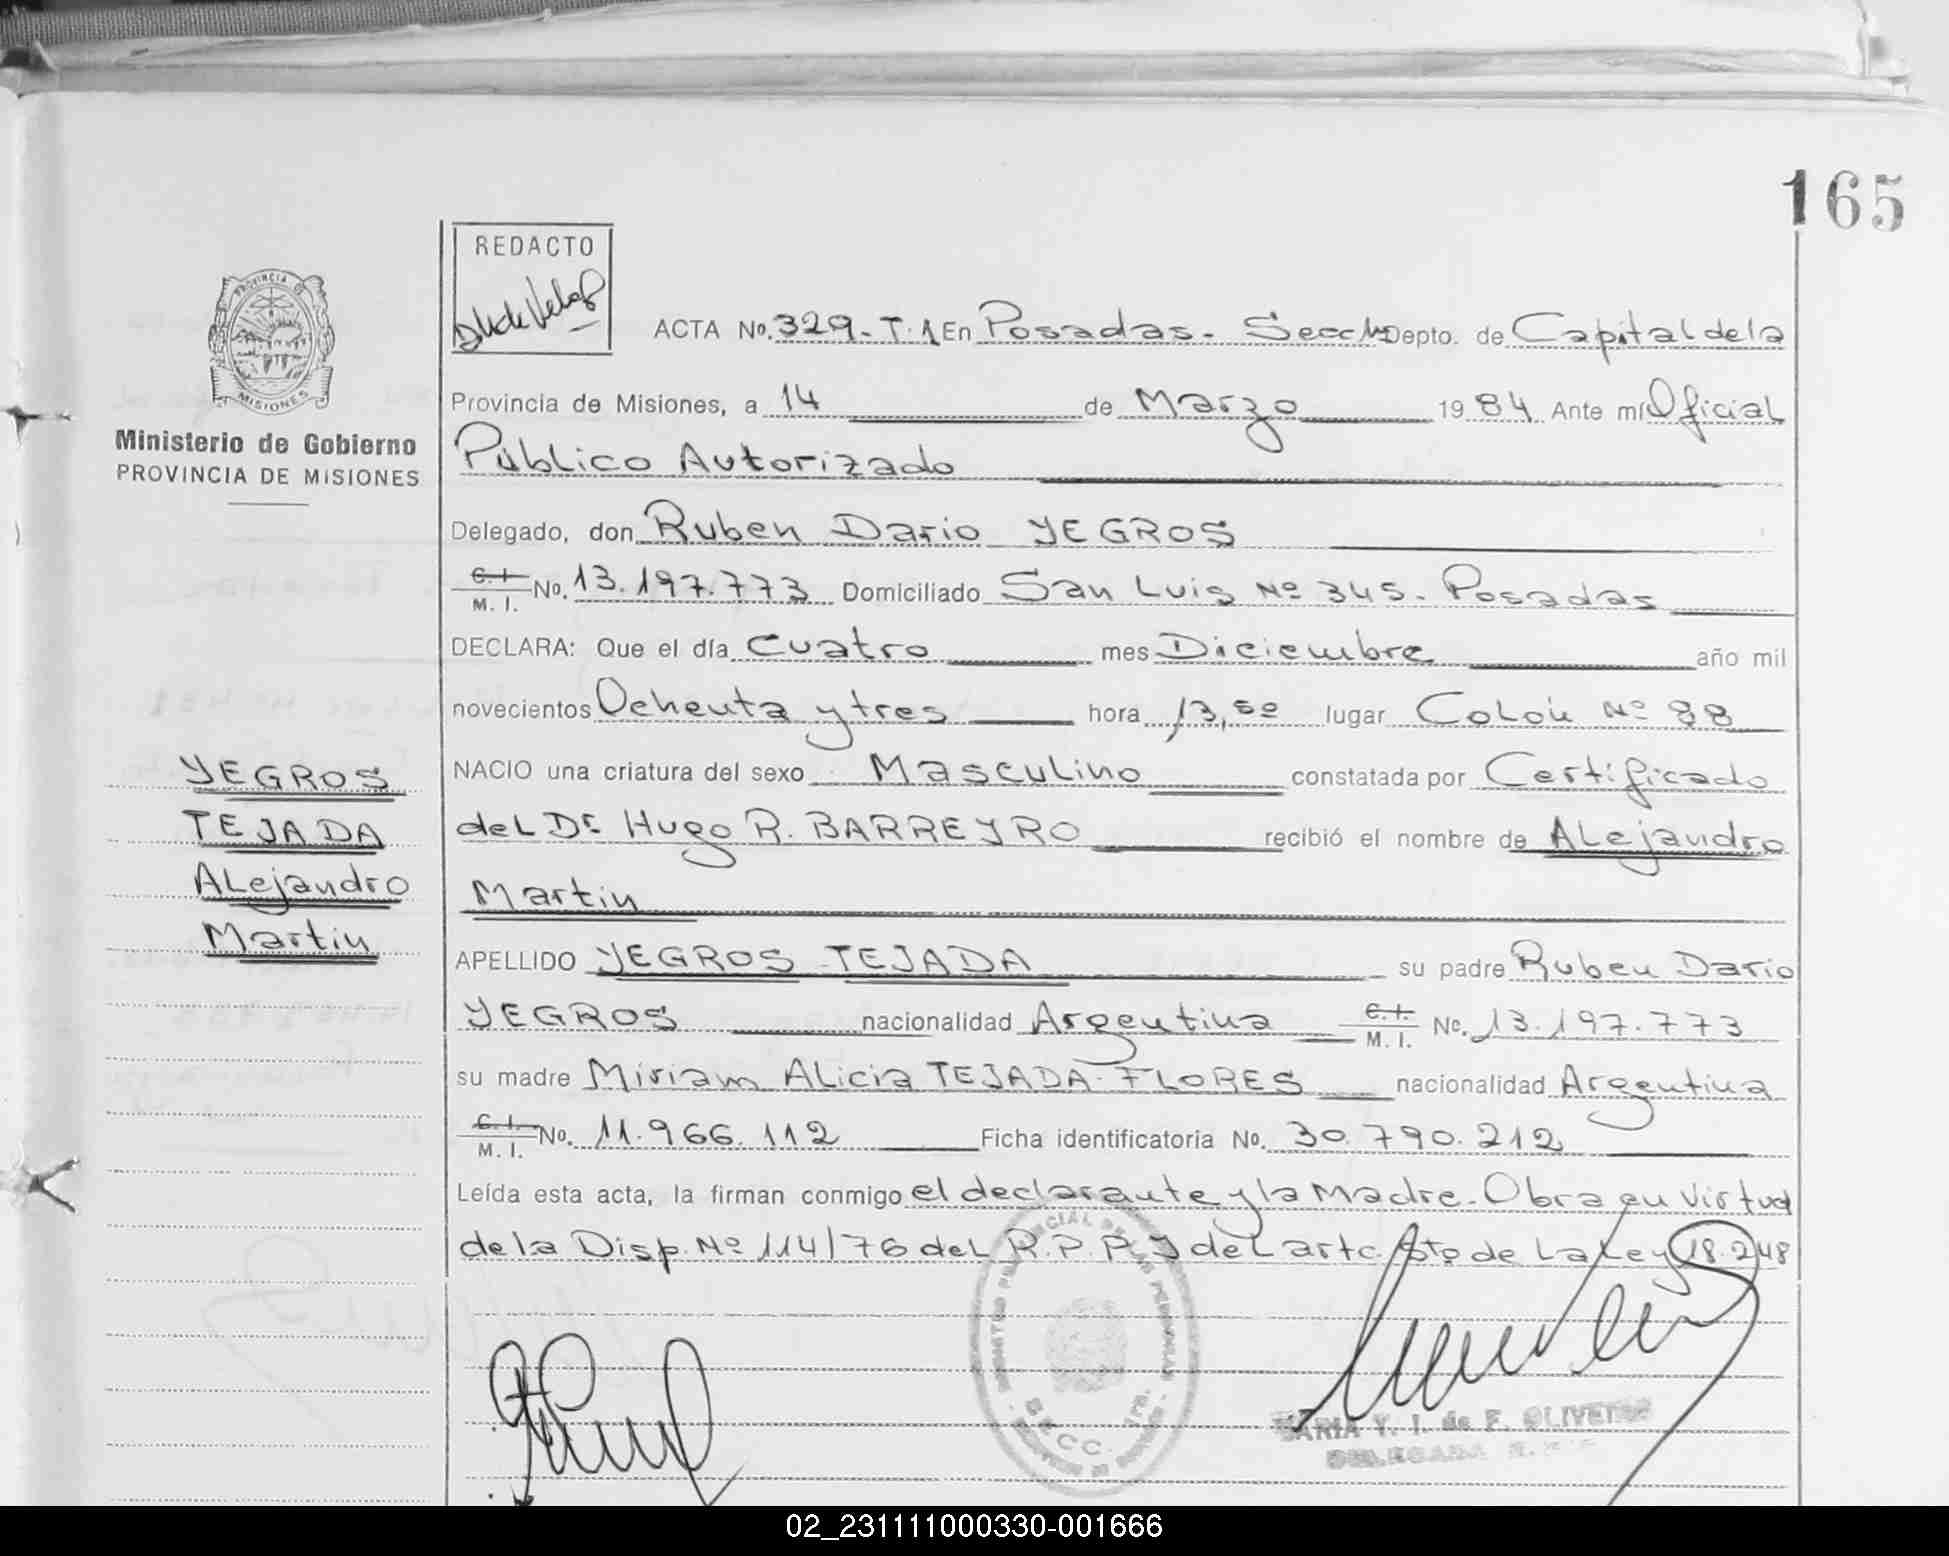 165
REDACTO
ACTA No. 329-T.1 En Posadas- Secc 1ª Depto. de Capital de la
PROVINCIA DE
MISIONES
Provincia de Misiones, a 14 de Marzo 1984. Ante mí Oficial
Ministerio de Gobierno
PROVINCIA DE MISIONES
Público Autorizado
Delegado, don Ruben Dario YEGROS
C.I. M. I. No. 13.197.773 Domiciliado San Luis Nº 345. Posadas
DECLARA: Que el día Cuatro mes Diciembre año mil
novecientos Ochenta y tres hora 13,50 lugar Colón Nº 88
YEGROS
TEJADA
Alejandro
Martin
NACIO una criatura del sexo Masculino constatada por Certificado
del Dr Hugo R. BARREYRO recibió el nombre de Alejandro
Martin
APELLIDO YEGROS TEJADA su padre Ruben Dario
YEGROS nacionalidad Argentina C.I. M. I. No. 13.197.773
su madre Miriam Alicia TEJADA FLORES nacionalidad Argentina
C.I. M. I. No. 11.966.112 Ficha identificatoria No. 30.790.212
Leída esta acta, la firman conmigo el declarante y la Madre. Obra en virtud
de la Disp. Nº 114/76 del R.P.P y del artc. 5to de la Ley 18.248
SECC. 1ra.
MARIA Y. I. de F. OLIVETTI
DELEGADA
02_231111000330-001666